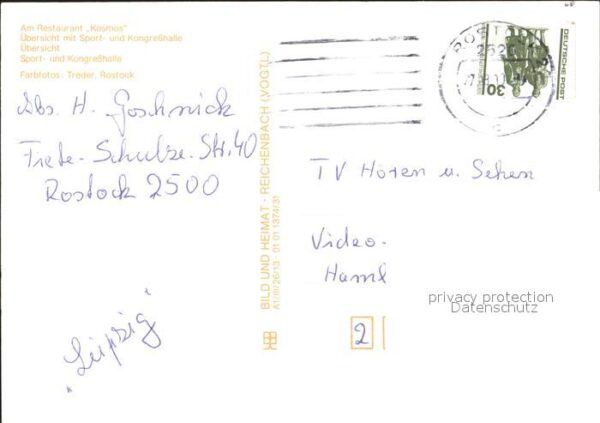 Am Restaurant „Kosmos"
Übersicht mit Sport- und Kongreßhalle
Übersicht
Sport- und Kongreßhalle
Farbfotos: Treder, Rostock
Abs. H. Goschnick
Fiete-Schulze-Str. 40
Rostock 2500
„Leipzig"
BILD UND HEIMAT · REICHENBACH (VOGTL)
A1/III/26/13 · 01 01 1374/31
ROSTOCK
252
30
DEUTSCHE POST
TV Hören u. Sehen
Video-
Hamb
privacy protection
Datenschutz
2